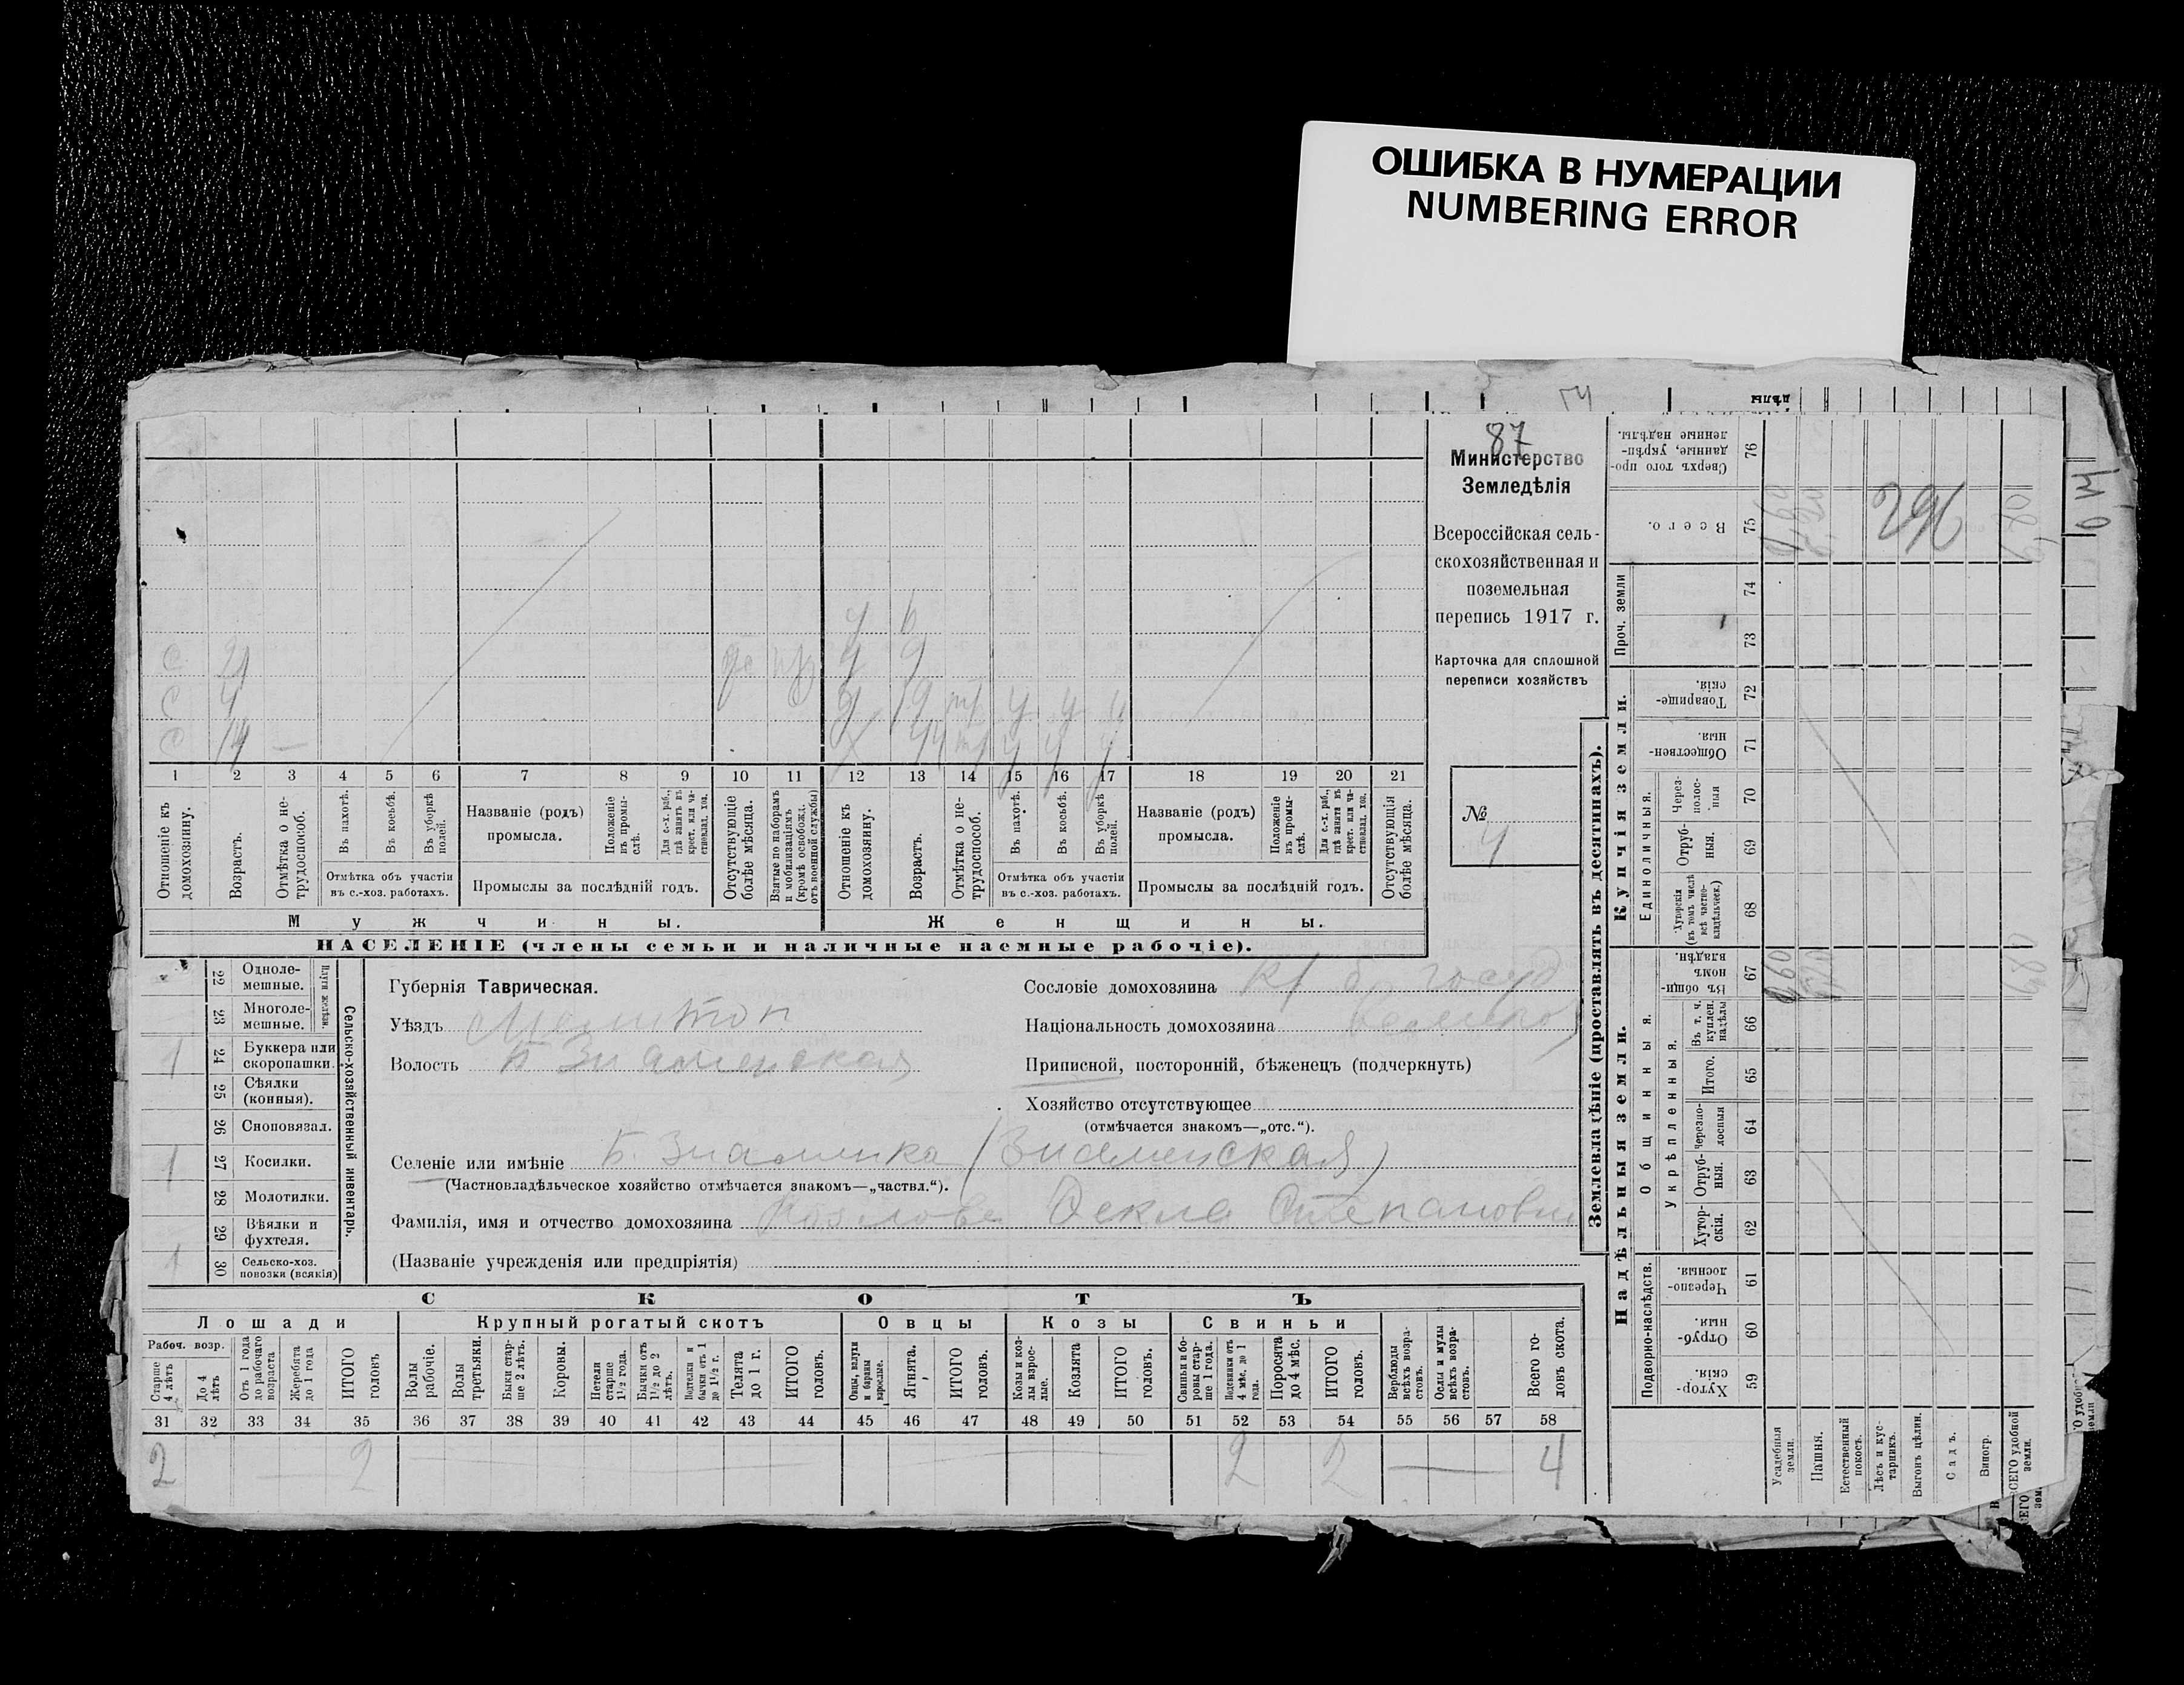 ОШИБКА В НУМЕРАЦИИ
NUMBERING ERROR
87
Министерство
Земледѣлія
Всероссійская сель-
скохозяйственная и
поземельная
перепись 1917 г.
Карточка для сплошной
переписи хозяйствъ
№
4
ч 6
с 21
с
с 14 —
1 2 3 4 5 6 7 8 9 10 11 12 13 14 15 16 17 18 19 20 21
Отношеніе къ домохозяину.
Возрастъ.
Отмѣтка о не-трудоспособ.
Въ пахотѣ.
Въ косьбѣ.
Въ уборкѣ полей.
Отмѣтка объ участіи въ с.-хоз. работахъ.
Названіе (родъ) промысла.
Положеніе въ промы-слѣ.
Для с.-х. раб., гдѣ занятъ въ крест. или ча-стновлад. хоз.
Промыслы за послѣдній годъ.
Отсутствующіе болѣе мѣсяца.
Взятые по наборамъ и мобилизаціямъ (кромѣ освобожд. отъ военной службы)
Отношеніе къ домохозяину.
Возрастъ.
Отмѣтка о не-трудоспособ.
Въ пахотѣ.
Въ косьбѣ.
Въ уборкѣ полей.
Отмѣтка объ участіи въ с.-хоз. работахъ.
Названіе (родъ) промысла.
Положеніе въ промы-слѣ.
Для с.-х. раб., гдѣ занятъ въ крест. или ча-стновлад. хоз.
Промыслы за послѣдній годъ.
Отсутствующія болѣе мѣсяца.
Мужчины.
Женщины.
НАСЕЛЕНІЕ (члены семьи и наличные наемные рабочіе).
22 Одноле-мешные.
23 Многоле-мешные.
Плуги желѣзн.
1 24 Буккера или скоропашки.
25 Сѣялки (конныя).
26 Сноповязал.
1 27 Косилки.
28 Молотилки.
29 Вѣялки и фухтеля.
1 30 Сельско-хоз. повозки (всякія)
Сельско-хозяйственный инвентарь.
Губернія Таврическая.
Уѣздъ Мелитоп
Волость Б Знаменская
Сословіе домохозяина кр бр госуд
Національность домохозяина великор
Приписной, посторонній, бѣженецъ (подчеркнуть)
Хозяйство отсутствующее
(отмѣчается знакомъ—„отс.“).
Селеніе или имѣніе Б. Знаменка (Знаменская)
(Частновладѣльческое хозяйство отмѣчается знакомъ—„частвл.“).
Фамилія, имя и отчество домохозяина Козлова Фекла Степановн
(Названіе учрежденія или предпріятія)
СКОТЪ
Лошади
Крупный рогатый скотъ
Овцы
Козы
Свиньи
Рабоч. возр.
Старше 4 лѣтъ
До 4 лѣтъ
Отъ 1 года до рабочаго возраста
Жеребята до 1 года
ИТОГО головъ
Волы рабочіе.
Волы третьяки.
Быки стар-ше 2 лѣтъ.
Коровы.
Нетели старше 1½ года.
Бычки отъ 1½ до 2 лѣтъ.
Телятки и бычки отъ 1 до 1½ г.
Телята до 1 г.
ИТОГО головъ.
Овцы, валухи и бараны взрослые.
Ягнята.
ИТОГО головъ.
Козы и коз-лы взрос-лые.
Козлята
ИТОГО головъ.
Свиньи и бо-ровы стар-ше 1 года.
Подсвинки отъ 4 мѣс. до 1 года.
Поросята до 4 мѣс.
ИТОГО головъ.
Верблюды всѣхъ возра-стовъ.
Ослы и мулы всѣхъ возра-стовъ.
Всего го-ловъ скота.
31 32 33 34 35 36 37 38 39 40 41 42 43 44 45 46 47 48 49 50 51 52 53 54 55 56 57 58
2 — 2 — — — 2 2 — 4
Землевладѣніе (проставлять въ десятинахъ).
Надѣльныя земли.
Купчія земли.
Проч. земли
Подворно-наслѣдств.
Общинныя.
Укрѣпленныя.
Единоличныя.
Хутор-скія. 59
Отруб-ныя. 60
Черезпо-лосныя. 61
Хутор-скія. 62
Отруб-ныя. 63
Черезпо-лосныя 64
Итого. 65
Въ т. ч. куплен. надѣлы 66
Въ общи-номъ владѣн. 67
Хуторскія (въ томъ числѣ всѣ частно-владѣльческ.) 68
Отруб-ныя. 69
Через-полос-ныя 70
Обществен-ныя. 71
Товарище-скія. 72
73
74
Всего. 75
Сверхъ того про-данные, укрѣп-ленные надѣлы. 76
296
Усадебныя земли.
Пашня.
Естественный покосъ.
Лѣсъ и кус-тарникъ.
Выгонъ цѣлин.
Садъ.
Виногр.
ВСЕГО удобной земли.